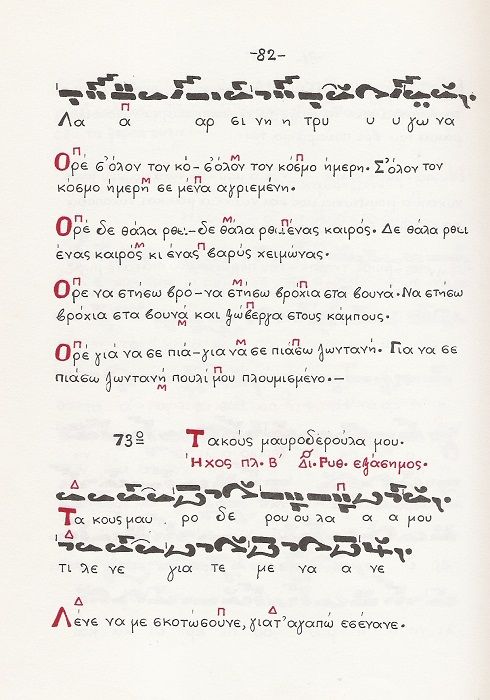 -82-
Λα α αρ σι νη η τρυ υ υ γω να
Ορέ σ'όλον τον κό-σ'όλον τον κόσμο ήμερη. Σ'όλον τον
κόσμο ήμερη σε μένα αγριεμένη.
Ορέ δε θάλα ρθει-δε θάλα ρθει ένας καιρός. Δε θάλα ρθει
ένας καιρός κι ένας βαρύς χειμώνας.
Ορέ να στήσω βρό-να στήσω βρόχια στα βουνά. Να στήσω
βρόχια στα βουνά και ξώβεργα στους κάμπους.
Ορέ γιά να σε πιά-για να σε πιάσω ζωντανή. Για να σε
πιάσω ζωντανή πουλί μου πλουμισμένο.-
73ο Τακούς μαυροδερούλα μου.
Ήχος πλ. Β' Δι. Ρυθ. εξάσημος.
Τα κους μαυ ρο δε ρού ού λα α α μου
τι λε νε για τε με να α νε
Λένε να με σκοτώσουνε, γιατ'αγαπώ εσένανε.